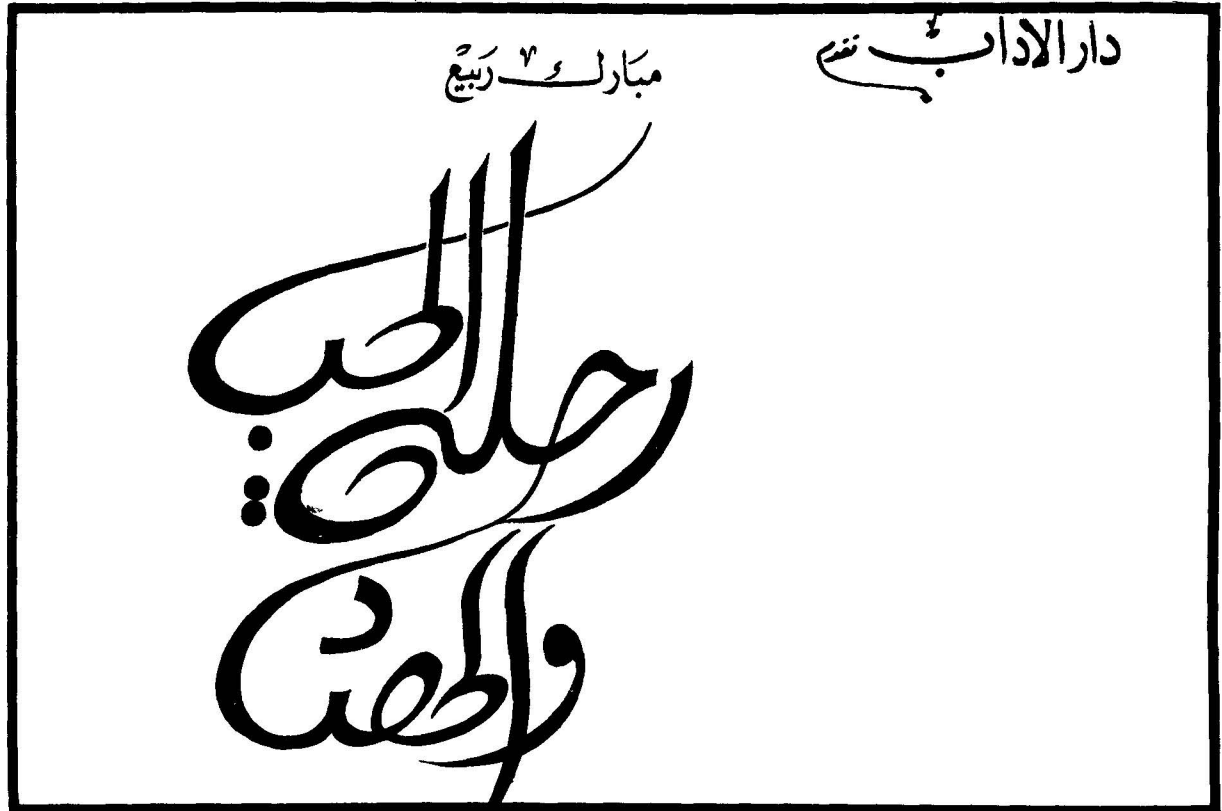 دار الآداب تقدم
مبارك ربيع
رحلة الحب
والحصاد